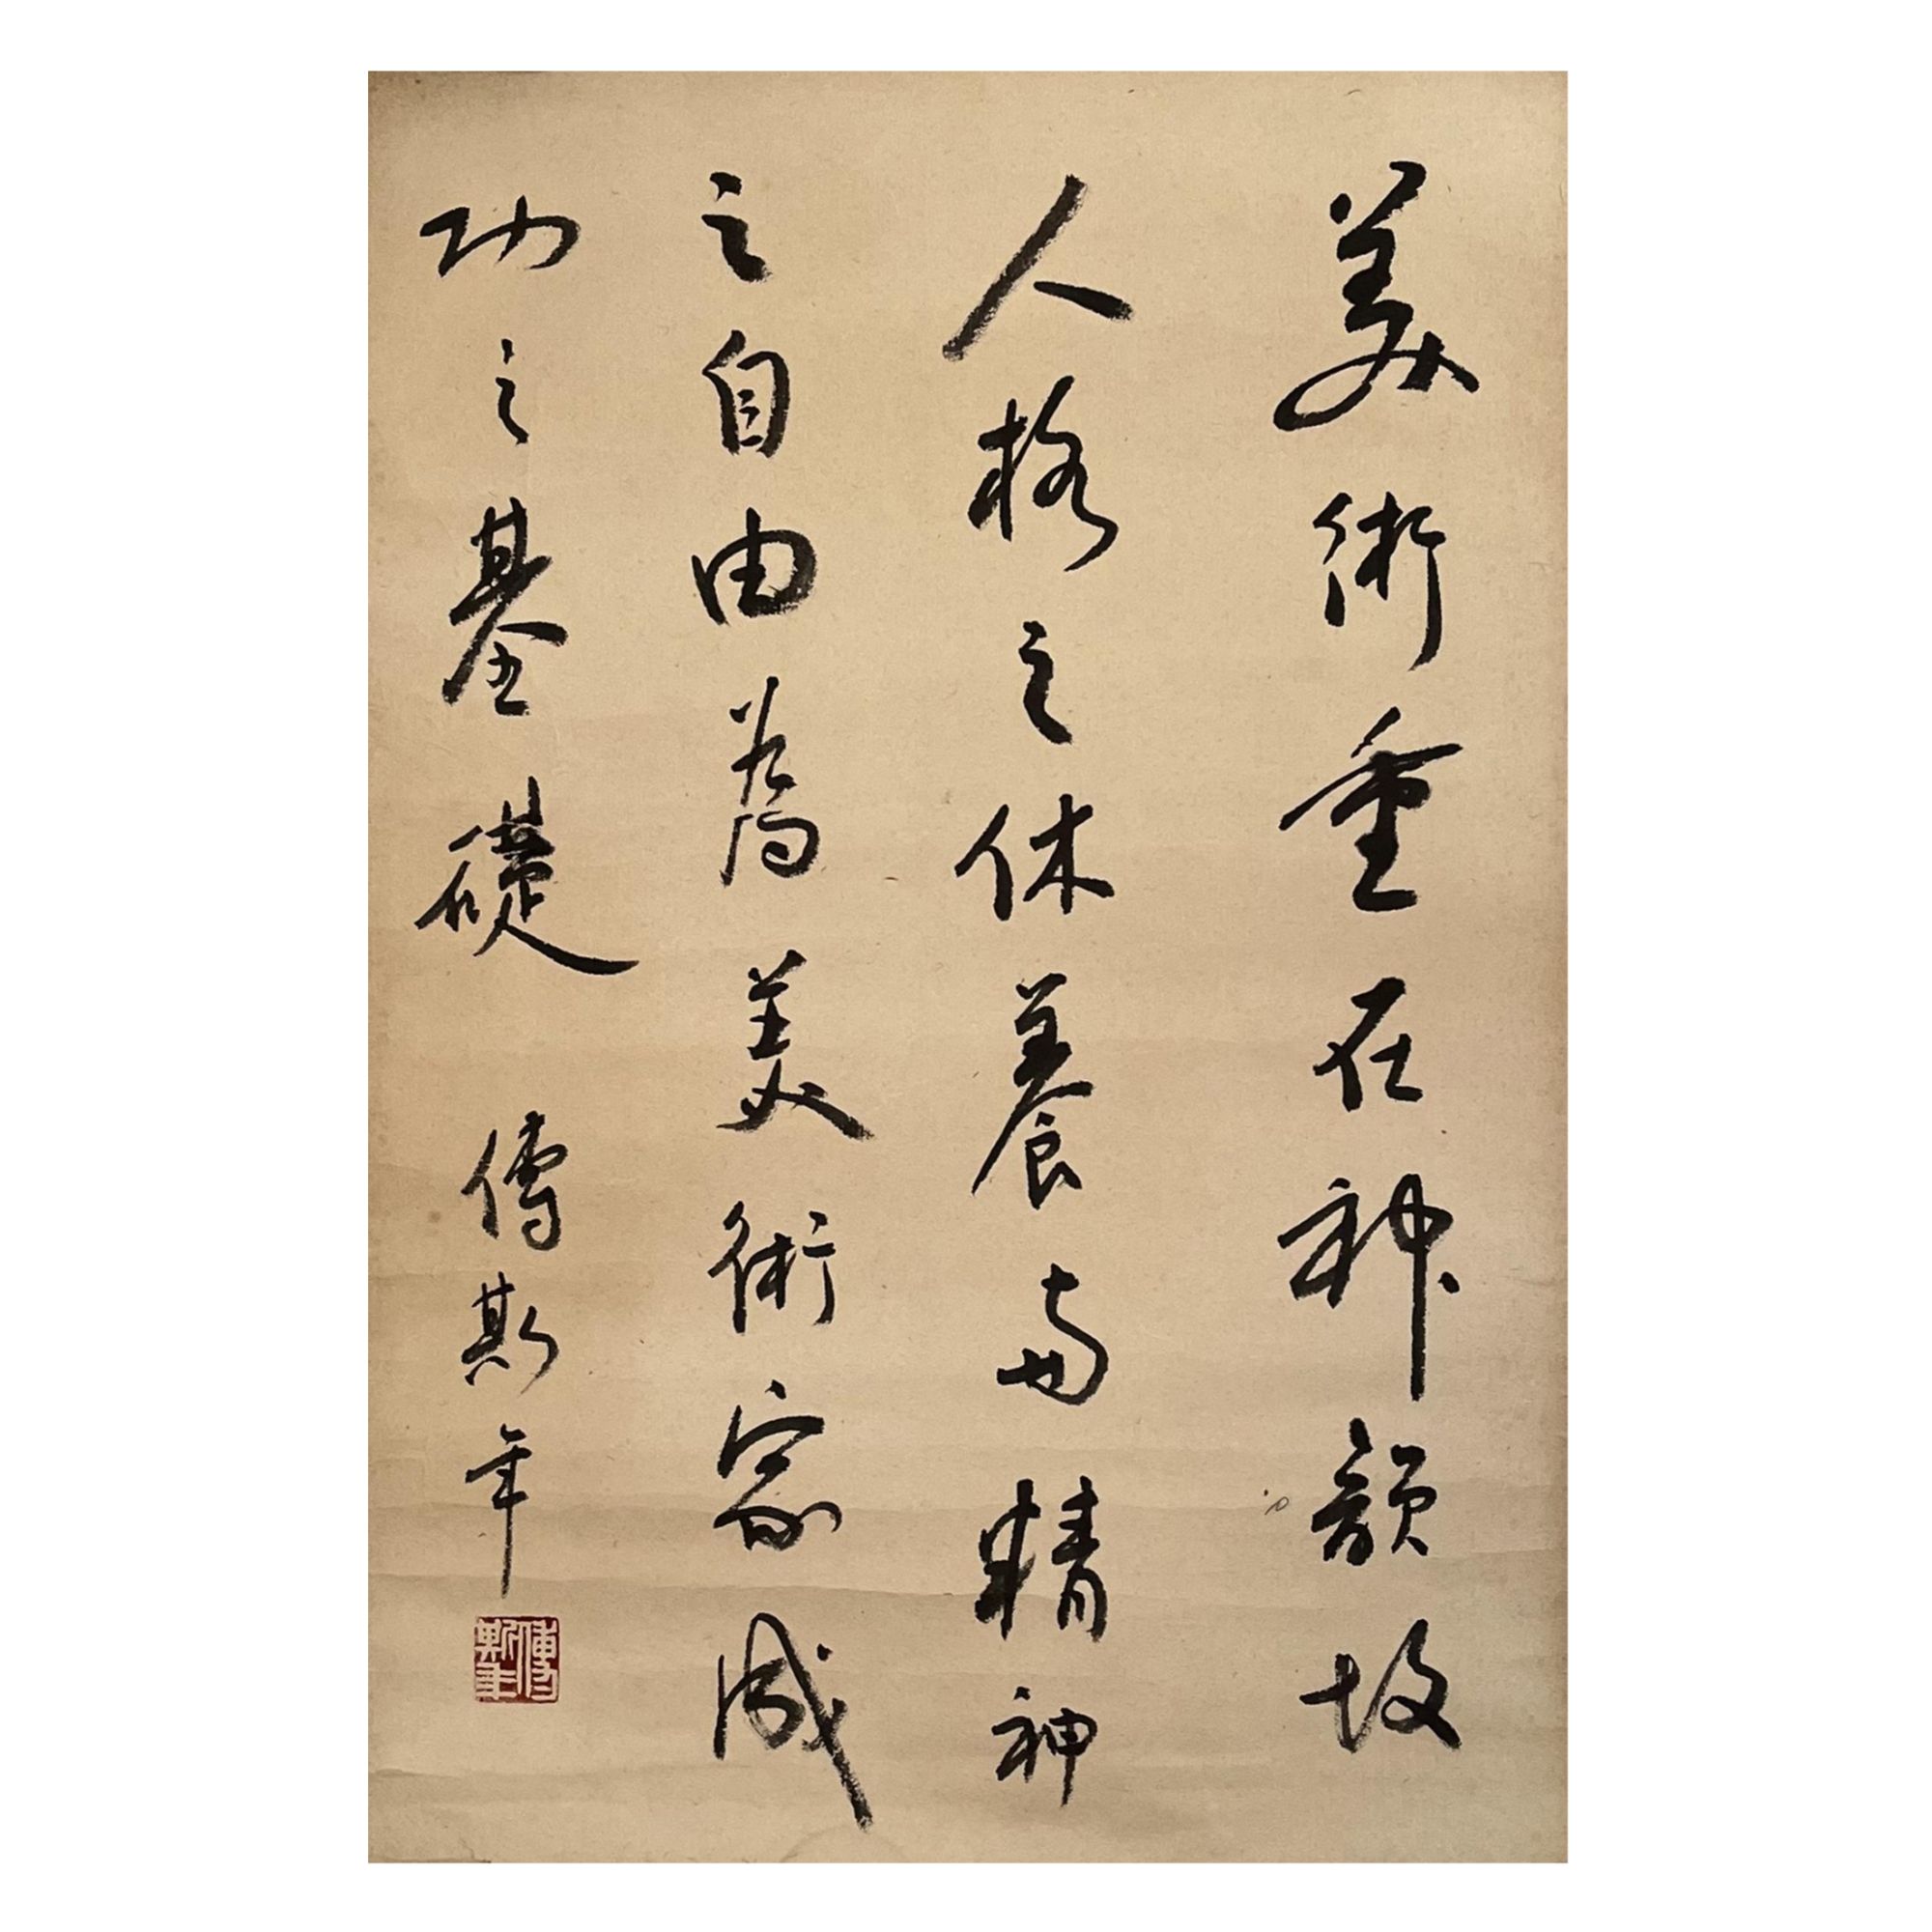 美術重在神韻故
人格之休養与精神
之自由為美術家成
功之基礎 傅斯年
傅斯年